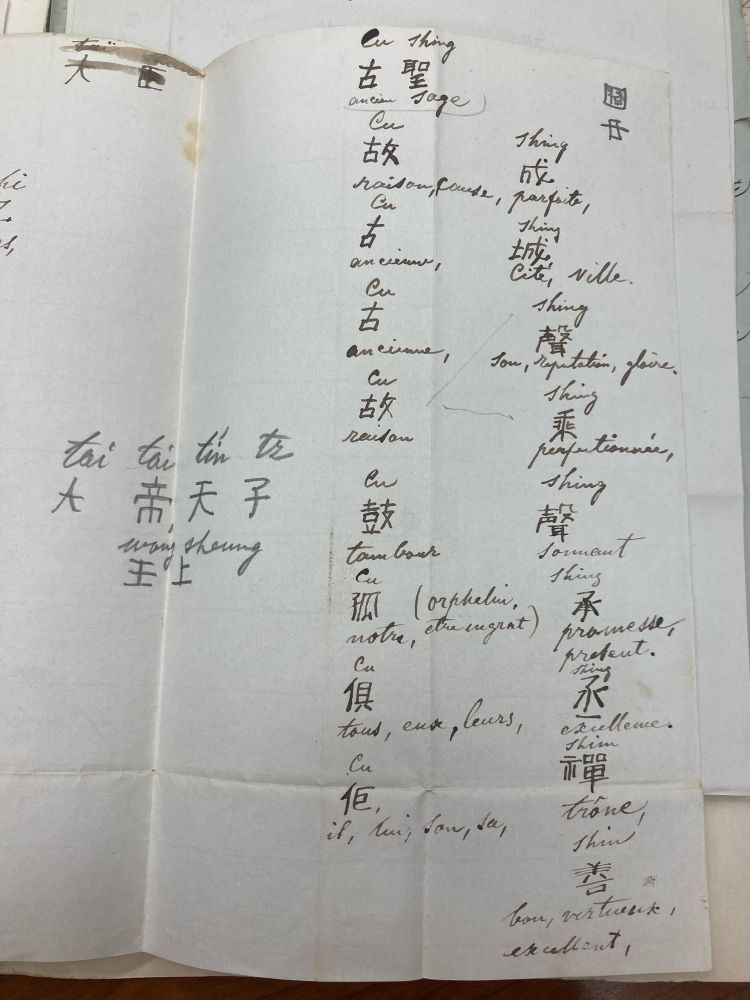 大
tai tai tín tz
大 帝 天 子
wong sheung
王 上
Cu Shing
古 聖
ancien sage
Cu
故
raison, cause,
Cu
古
ancienne,
Cu
古
ancienne,
Cu
故
raison
Cu
鼓
tambour
Cu
孤 (orphelin,
notre, etre ingrat)
Cu
俱
tous, eux, leurs,
Cu
佢,
il, lui, son, sa,
Shing
成
parfaite,
Shing
城
Cité, ville.
Shing
聲
son, reputation, gloire.
Shing
乘
perfectionnée,
Shing
聲
sonnant
Shing
承
promesse,
present.
Shing
丞
excellence.
Shim
禪
trône,
Shin
善
bon, virtueux,
excellent,